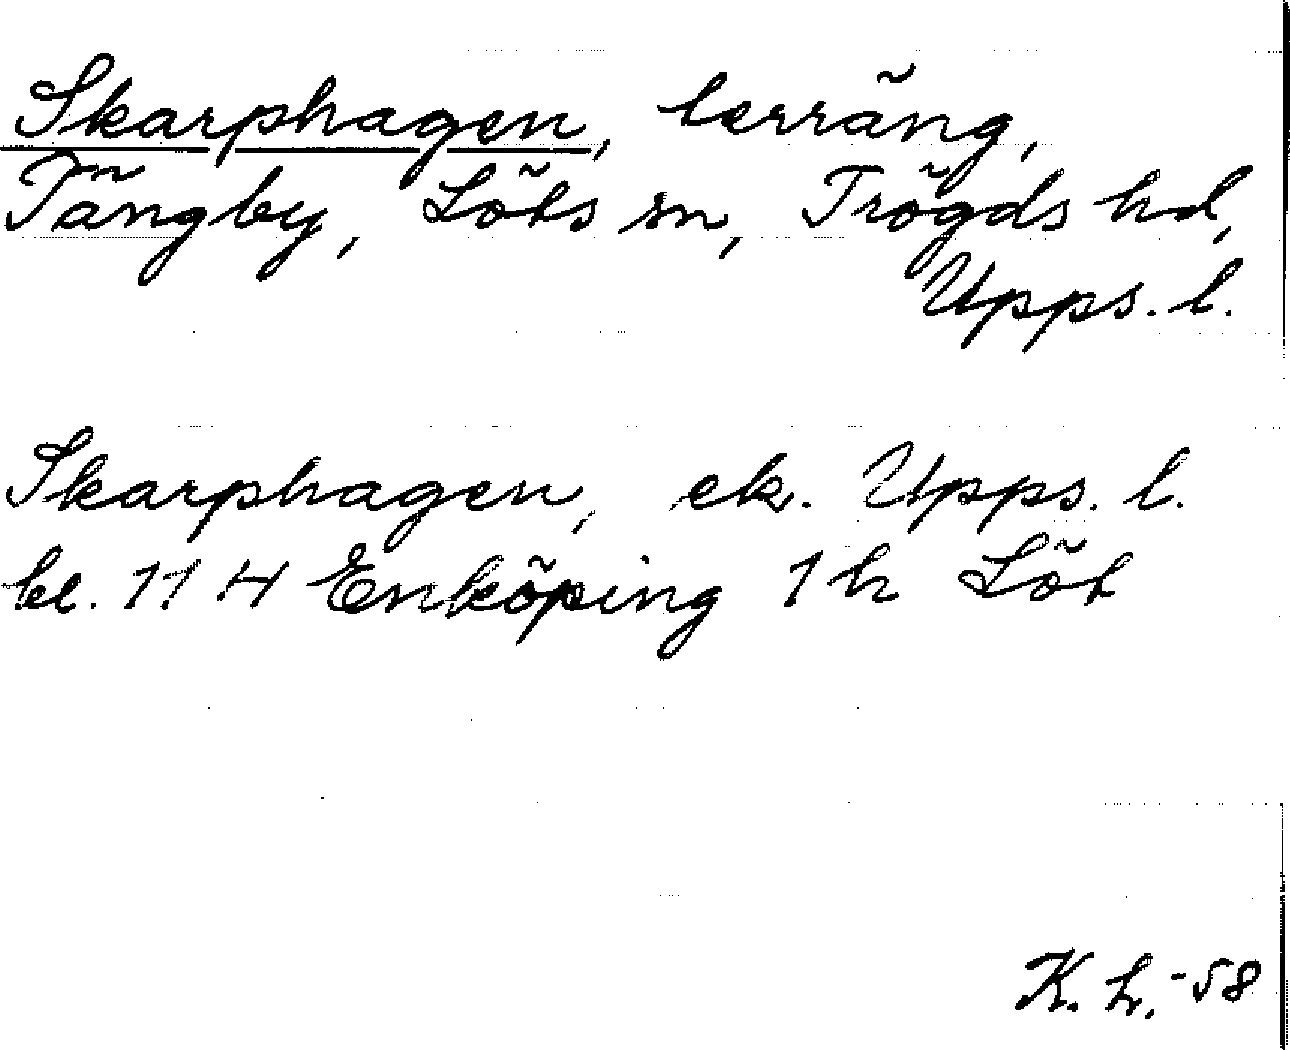 Skarphagen, terräng,
Tängby, Löts sn, Trögds hd,
Upps. l.
Skarphagen, ek. Upps. l.
bl. 11 H Enköping 1 h Löt
K. L. -58